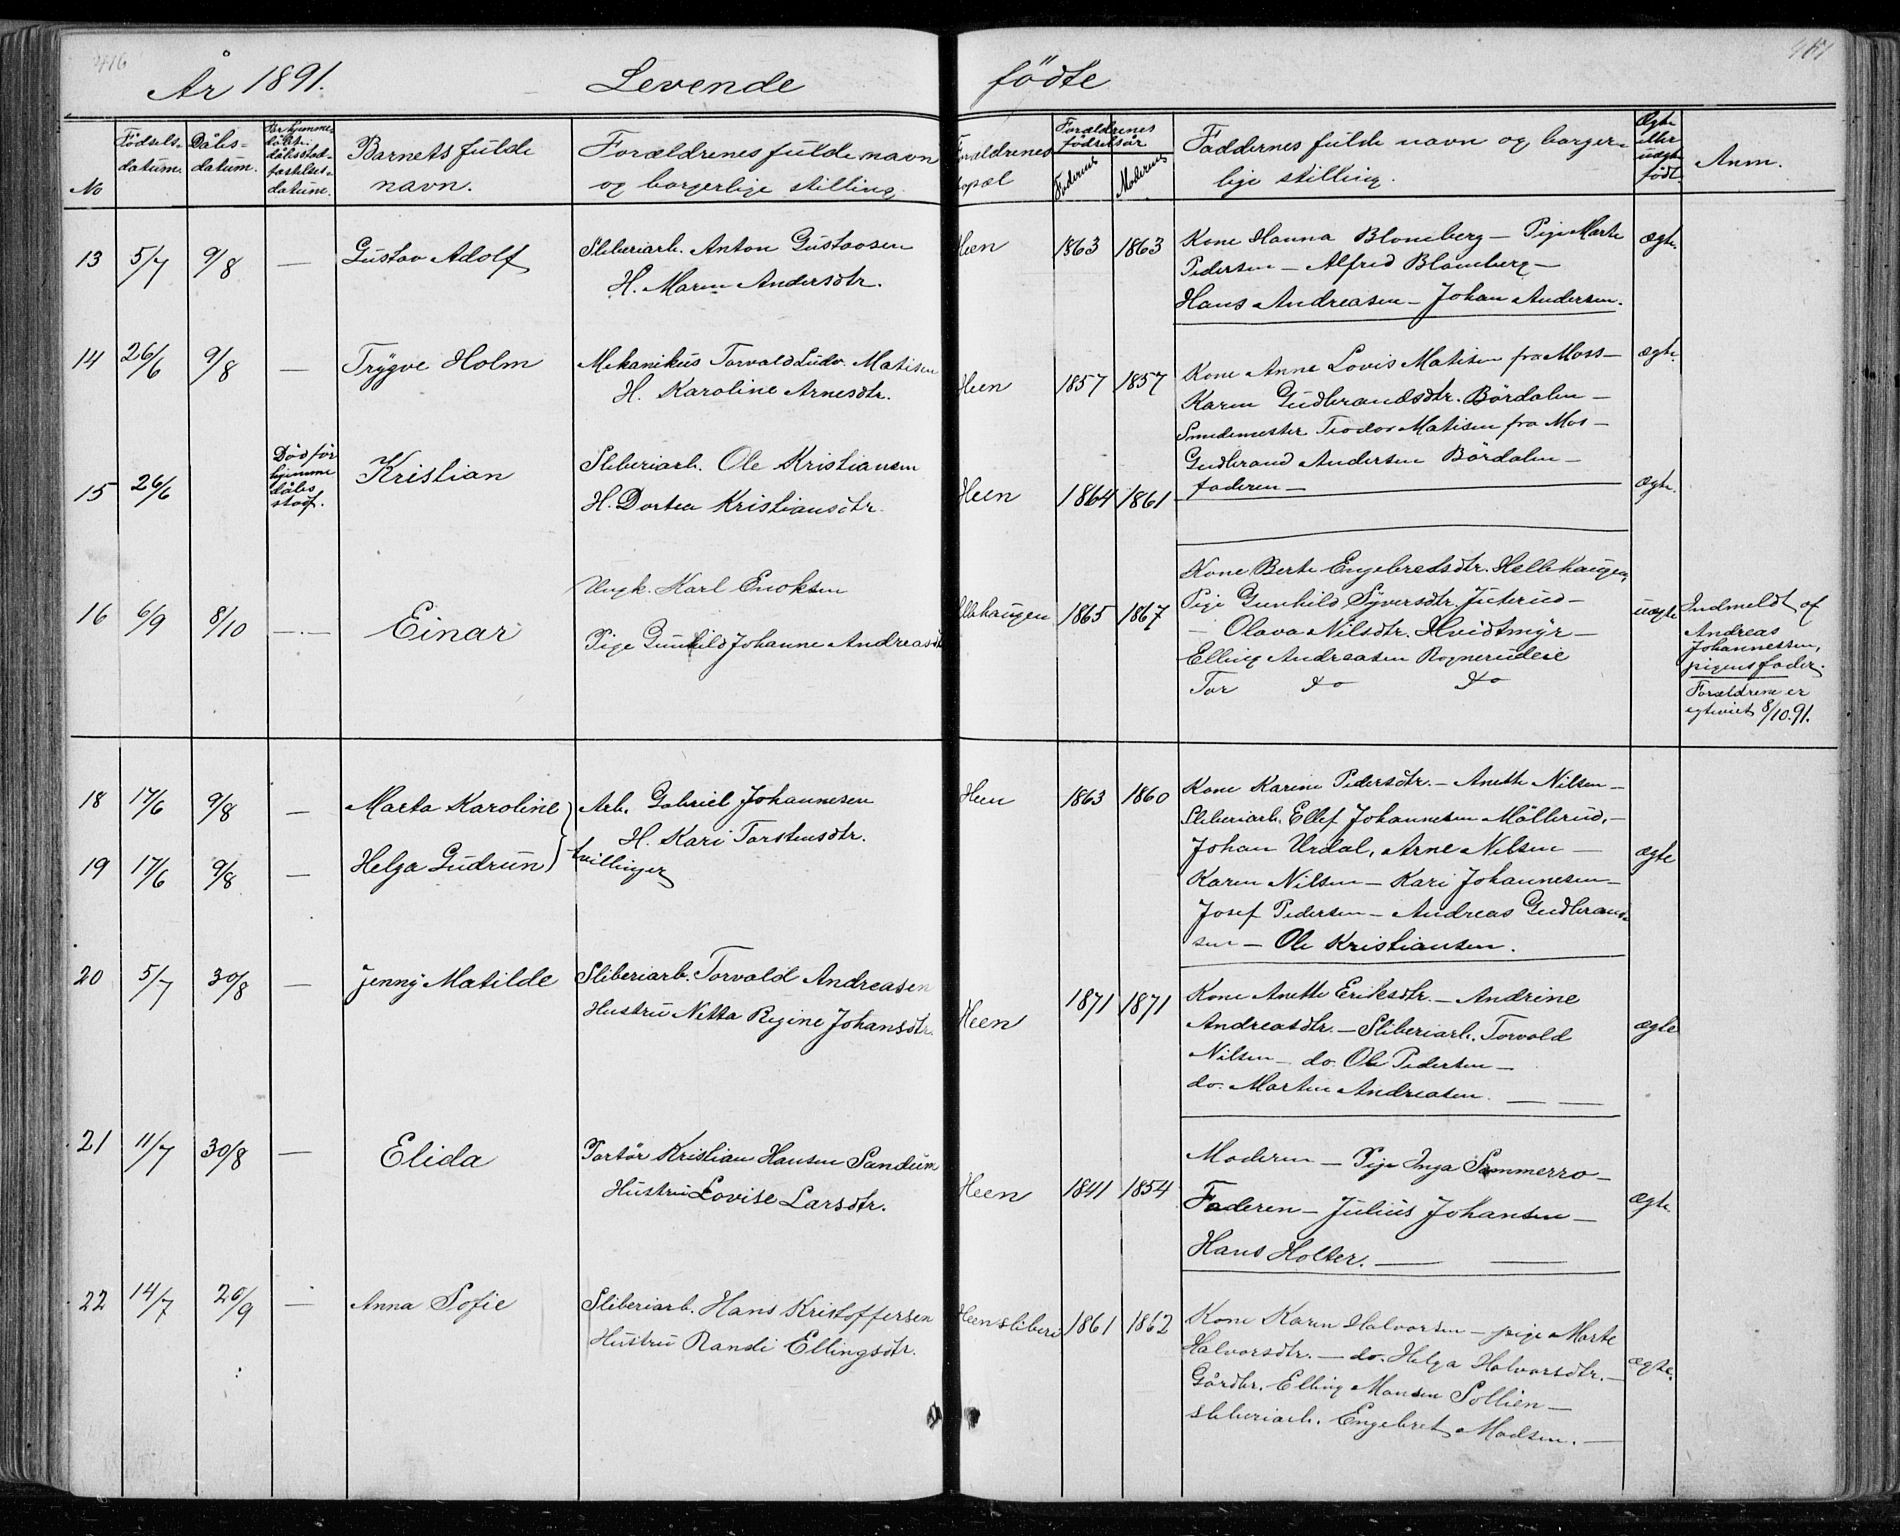 416
417
År 1891. Levende fødte
No
Fødsels-
datum.
Dåbs-
datum.
datum.
Barnets fulde
navn.
Forældrenes fulde navn
og borgerlige stilling.
Forældrenes
bopæl
Forældrenes
fødselsår
Faderens
Moderens
Faddernes fulde navn og borger-
lige stilling.
Ægte
eller
uægte
født.
Anm.
13 5/7 9/8 — Gustav Adolf
Sliberiarb. Anton Gustavsen
H. Maren Andersdtr.
Heen 1863 1863
Kone Hanna Blomberg — Pige Marte
Pedersen — Alfred Blomberg —
Hans Andreasen — Johan Andersen.
ægte
14 26/6 9/8 — Trÿgve Holm
Mekanikus Torvald Ludv. Matisen
H. Karoline Arnesdtr.
Heen 1857 1857
Kone Anne Lovis Matisen fra Moss —
Karen Gudbrandsdtr. Børdalen —
Smedemester Teodor Matisen fra Mos —
Gudbrand Andersen Børdalen —
faderen —
ægte.
15 26/6
Død før
hjemme
dåbs
stadf.
Kristian
Sliberiarb. Ole Kristiansen
H. Dortea Kristiansdtr.
Heen 1864 1861
ægte.
16 6/9 8/10 — Einar
Ungk. Karl Enoksen
Pige Gunhild Johanne Andreasdt
llehaugen 1865 1867
Kone Berte Engebretsdtr. Hellehaugen,
Pige Gunhild Sÿversdtr. Juterud —
— Olava Nilsdtr. Hvidtmÿr —
Elling Andreasen Rognerudeie
Tor do do
uægte
Indmeldt af
Andreas
Johannessen,
pigens fader.
Forældrene er
egteviet 8/10.91.
18 17/6 9/8 — Marta Karoline
19 17/6 9/8 — Helga Gudrun
tvillinger
Arb. Gabriel Johannesen
H. Kari Torstensdtr.
Heen 1863 1860
Kone Karine Pedersdtr. — Anette Nilsen —
Sliberiarb. Ellef Johannesen Møllerud, —
Johan Urdal, Arne Nilsen —
Karen Nilsen — Kari Johannesen —
Josef Pedersen — Andreas Gudbrand-
sen — Ole Kristiansen.
ægte
20 5/7 30/8 — Jenny Matilde
Sliberiarb. Torvald Andreasen
Hustru Netta Regine Johansdtr.
Heen 1871 1871
Kone Anette Eriksdtr. — Andrine
Andreasdtr. — Sliberiarb. Torvald
Nilsen — do. Ole Pedersen —
do. Martin Andreasen. — —
ægte
21 11/7 30/8 — Elida
Kristian Hansen Sandum
Hustru Lovise Larsdtr.
Heen 1841 1854
Moderen — Pige Inga Sommerro —
Faderen — Julius Johansen —
Hans Holter. — —
ægte
22 14/7 20/9 — Anna Sofie
Sliberiarb. Hans Kristoffersen
Hustru Randi Ellingsdtr.
Heensliberi 1861 1862
Kone Karen Halvorsen — pige Marte
Halvorsdtr. — do. Helga Halvorsdtr. —
Gårdbr. Elling Monsen Sollien —
sliberiarb. Engebret Madsen. —
ægte.